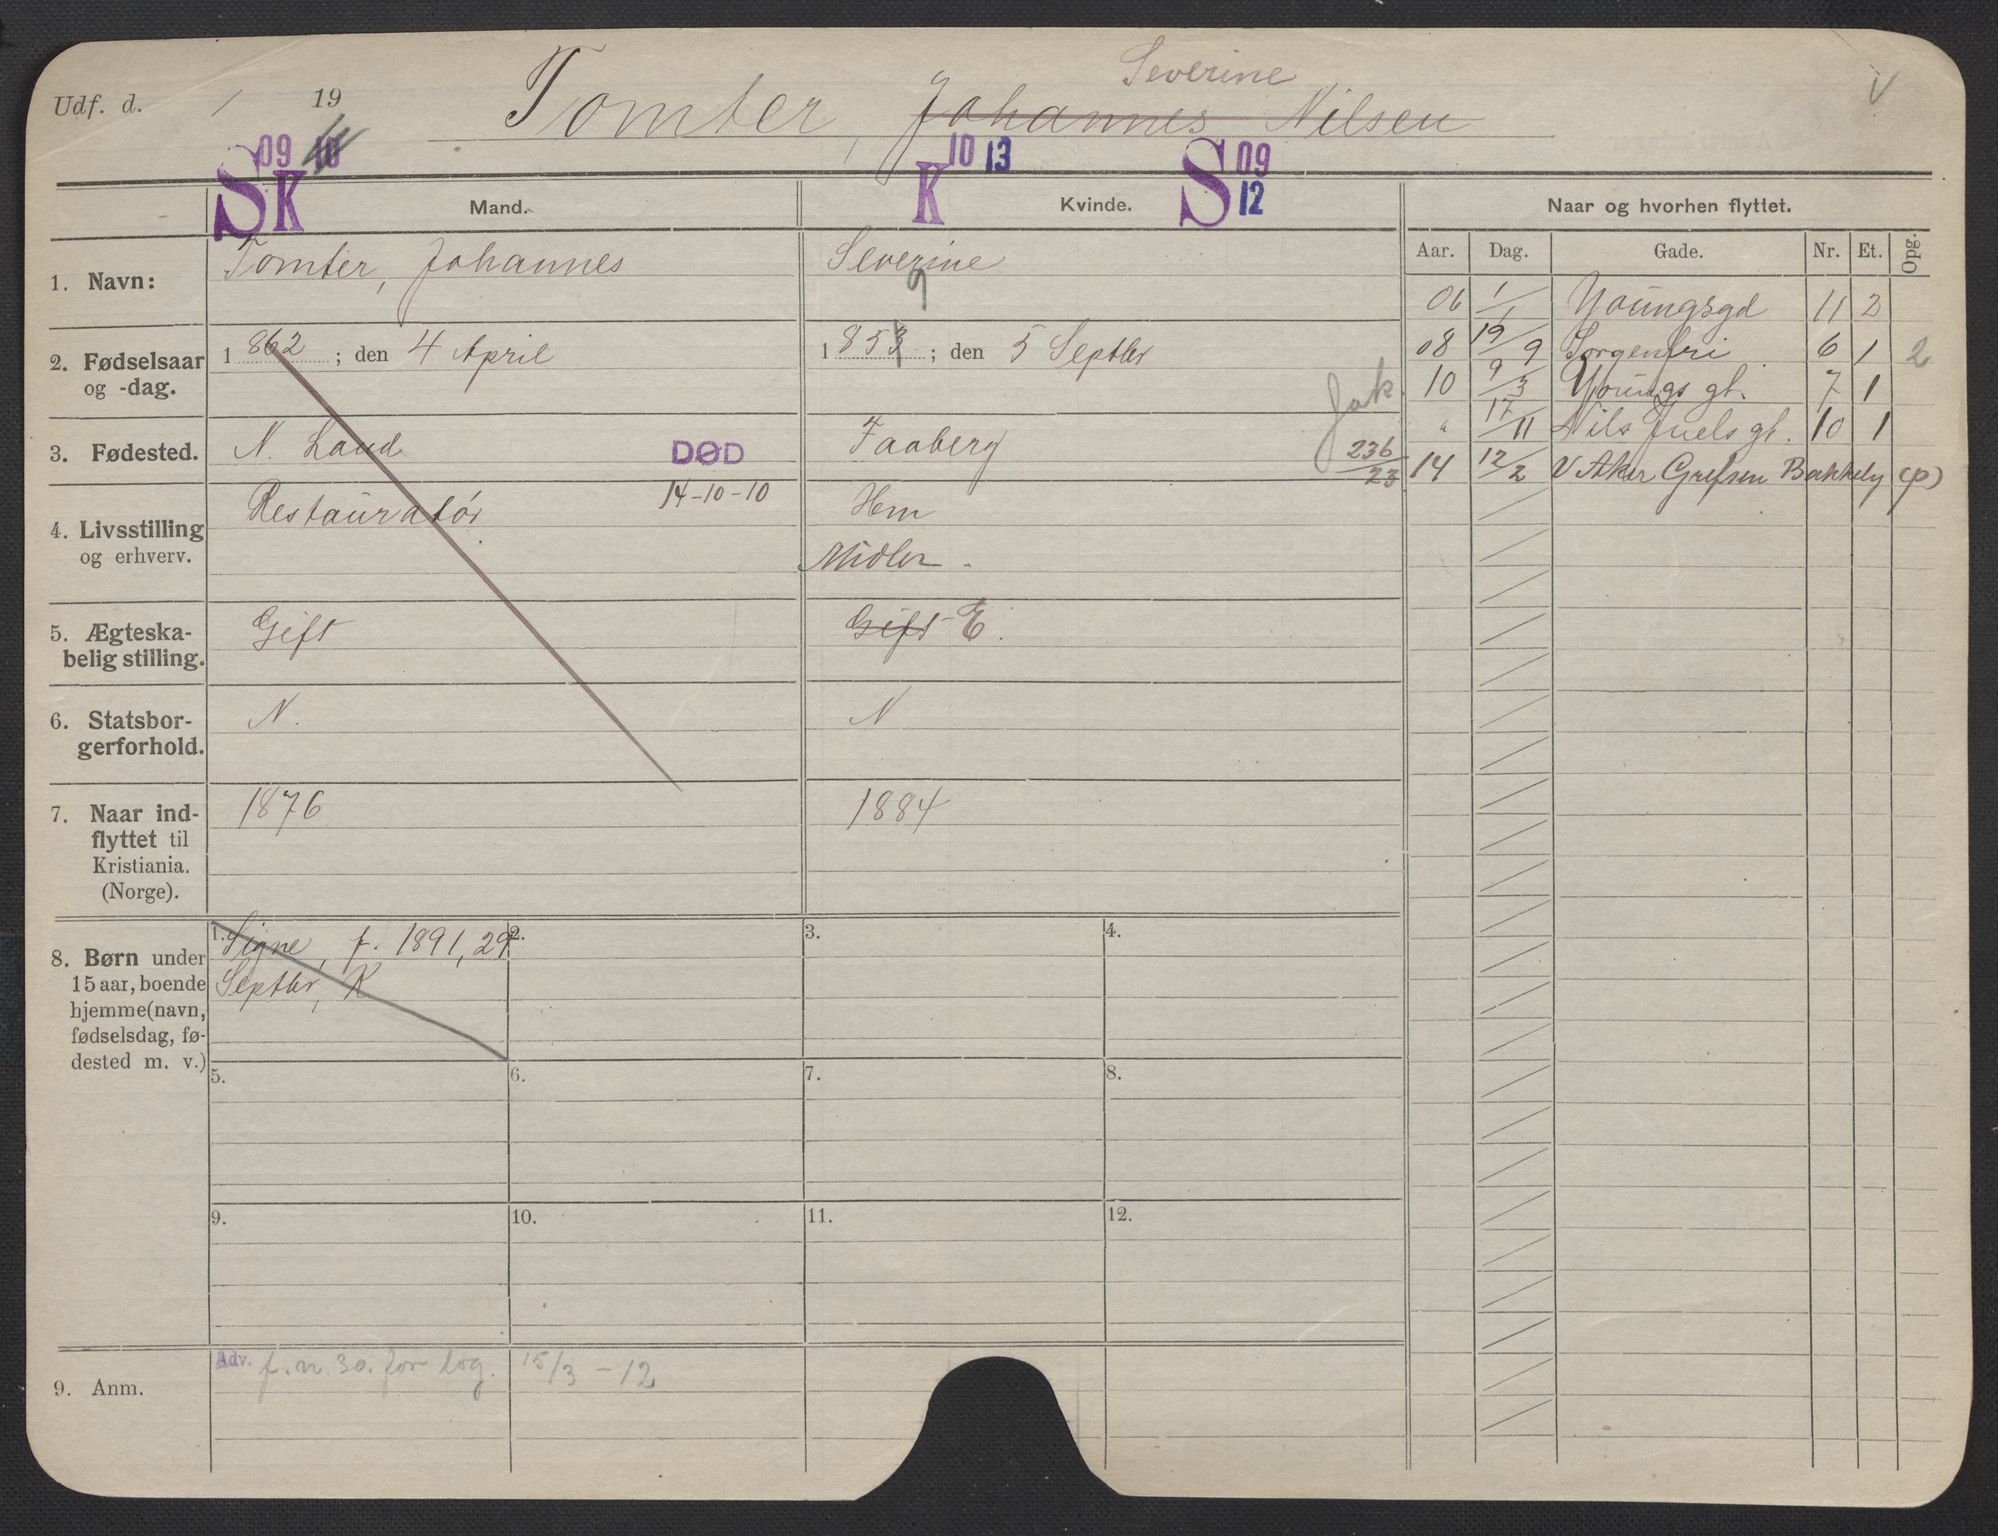 Udf. d. / 19
Tomter, Johannes Nilsen
Severine
V
S 09 K 10
K 10 13
S 09 12
Mand.
Kvinde.
Naar og hvorhen flyttet.
Aar. Dag. Gade. Nr. Et. Opg.
1. Navn:
Tomter, Johannes
Severine
9
2. Fødselsaar
og -dag.
1 862 ; den 4 April
1 853 ; den 5 Septbr
3. Fødested.
N. Land
DØD
14-10-10
Faaberg
236/23
4. Livsstilling
og erhverv.
Restauratør
Hem
Midler.
5. Ægteska-
belig stilling.
Gift
Gift E.
6. Statsbor-
gerforhold.
N.
N
7. Naar ind-
flyttet til
Kristiania.
(Norge).
1876
1884
06 1/1 Youngsgd 11 2
08 19/9 Sorgenfri 6 1 2
10 9/3 Youngs gt. 7 1
" 17/11 Nils Juels gt. 10 1
14 12/2 V Aker Grefsen Bakkely (p)
8. Børn under
15 aar, boende
hjemme (navn,
fødselsdag, fø-
dested m. v.)
1. Signe, f. 1891, 29
Septbr, K
2.
3.
4.
5.
6.
7.
8.
9.
10.
11.
12.
9. Anm.
Adv. f. n. 30. for log. 15/3 - 12